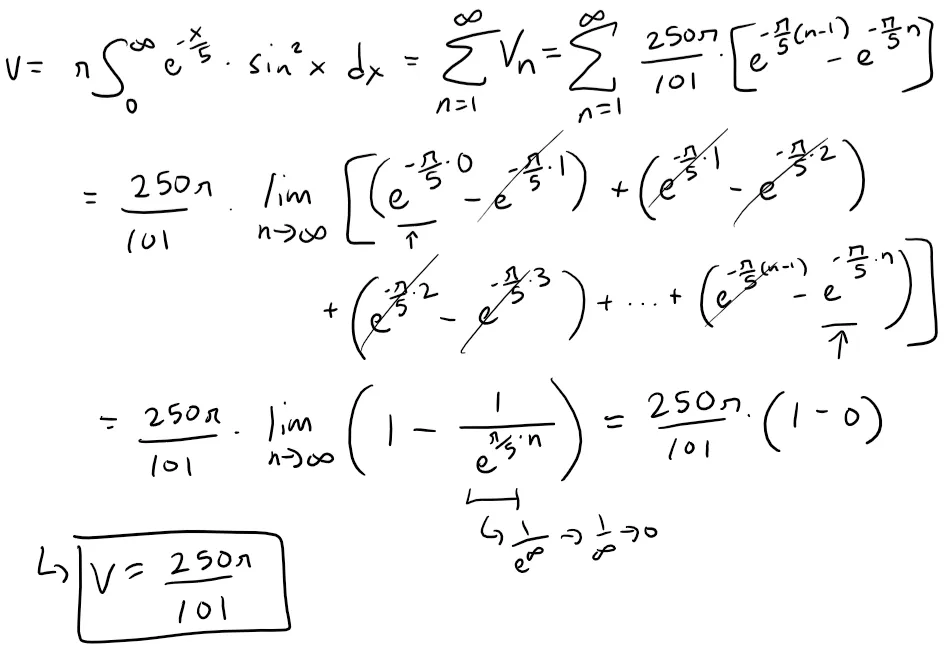 V = π∫₀^∞ e^(-x/5) · sin²x dx = ∑_(n=1)^∞ Vₙ = ∑_(n=1)^∞ 250π/101 · [e^(-π/5(n-1)) - e^(-π/5 n)]
= 250π/101 · lim_(n→∞) [(e^(-π/5·0) - e^(-π/5·1)) + (e^(-π/5·1) - e^(-π/5·2))
↑
+ (e^(-π/5·2) - e^(-π/5·3)) + ... + (e^(-π/5(n-1)) - e^(-π/5·n))]
↑
= 250π/101 · lim_(n→∞) (1 - 1/e^(π/5·n)) = 250π/101 · (1 - 0)
↳ 1/e^∞ → 1/∞ → 0
↳ V = 250π/101